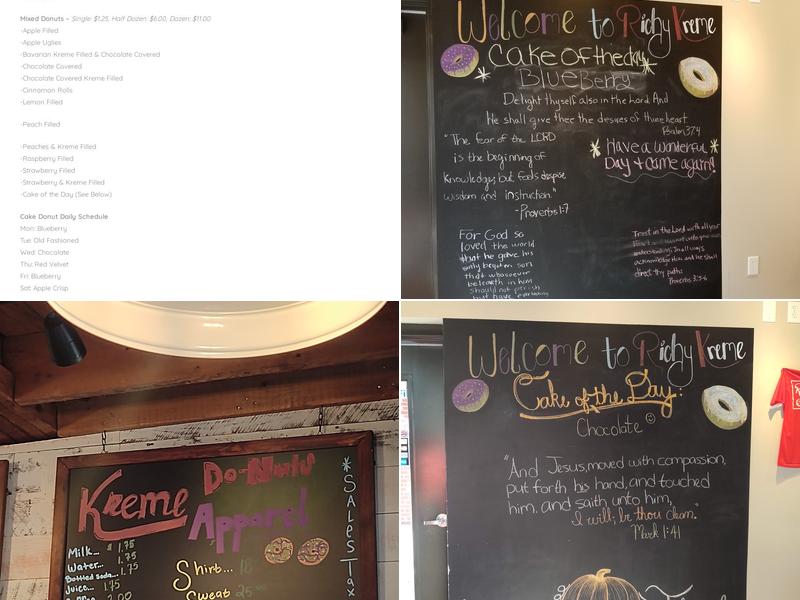 Mixed Donuts ~ Single: $1.25, Half Dozen: $6.00, Dozen: $11.00
-Apple Filled
-Apple Uglies
-Bavarian Kreme Filled & Chocolate Covered
-Chocolate Covered
-Chocolate Covered Kreme Filled
-Cinnamon Rolls
-Lemon Filled
-Peach Filled
-Peaches & Kreme Filled
-Raspberry Filled
-Strawberry Filled
-Strawberry & Kreme Filled
-Cake of the Day (See Below)
Cake Donut Daily Schedule
Mon: Blueberry
Tue: Old Fashioned
Wed: Chocolate
Thu: Red Velvet
Fri: Blueberry
Sat: Apple Crisp
Welcome to Richy Kreme
Cake of the day
Blueberry
Delight thyself also in the Lord And
He shall give thee the desires of thine heart.
Psalm 37:4
"The fear of the LORD
is the beginning of
knowledge; but fools despise
wisdom and instruction."
-Proverbs 1:7
Have a wonderful
Day & come again!
For God so
loved the world
that he gave his
only begotten son
that whosoever
believeth in him
should not perish
but have everlasting
Trust in the Lord with all your
understanding. In all ways
acknowledge Him and he shall
direct thy paths
Proverbs 3:5-6
Kreme Do-Nuts
Apparel
Milk... $1.75
Water... 1.75
Bottled soda... 1.75
Juice... 1.75
2.00
Shirt... 18
Sweat 25
*Sales Tax
Welcome to Richy Kreme
Cake of the Day:
Chocolate
"And Jesus, moved with compassion,
put forth his hand, and touched
him, and saith unto him,
I will; be thou clean."
Mark 1:41